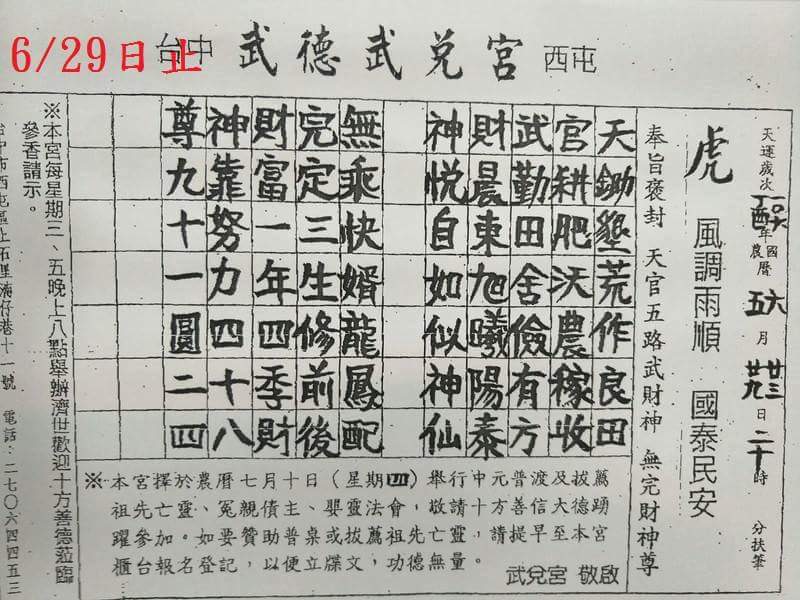 6/29日止
台中 武德武兌宮 西屯
天運歲次丁酉年 國一○六 農曆五六月廿三廿九日二十時 分扶筆
虎 風調雨順 國泰民安
奉旨褒封 天官五路武財神 無完財神尊
天鋤墾荒作良田
官耕肥沃農稼收
武勤田舍儉有方
財晨東旭曦陽泰
神悅自如似神仙
無乘快婿龍鳳配
完定三生修前後
財富一年四季財
神靠努力四十八
尊九十一圓二四
※本宮擇於農曆七月十日（星期四）舉行中元普渡及拔薦
祖先亡靈、冤親債主、嬰靈法會，敬請十方善信大德踴
躍參加。如要贊助普桌或拔薦祖先亡靈，請提早至本宮
櫃台報名登記，以便立牒文，功德無量。
武兌宮 敬啟
※本宮每星期三、五晚上八點舉辦濟世歡迎十方善德蒞臨
參香請示。
台中市西屯區上石里湳仔巷十一號 電話：二七○六四四五三